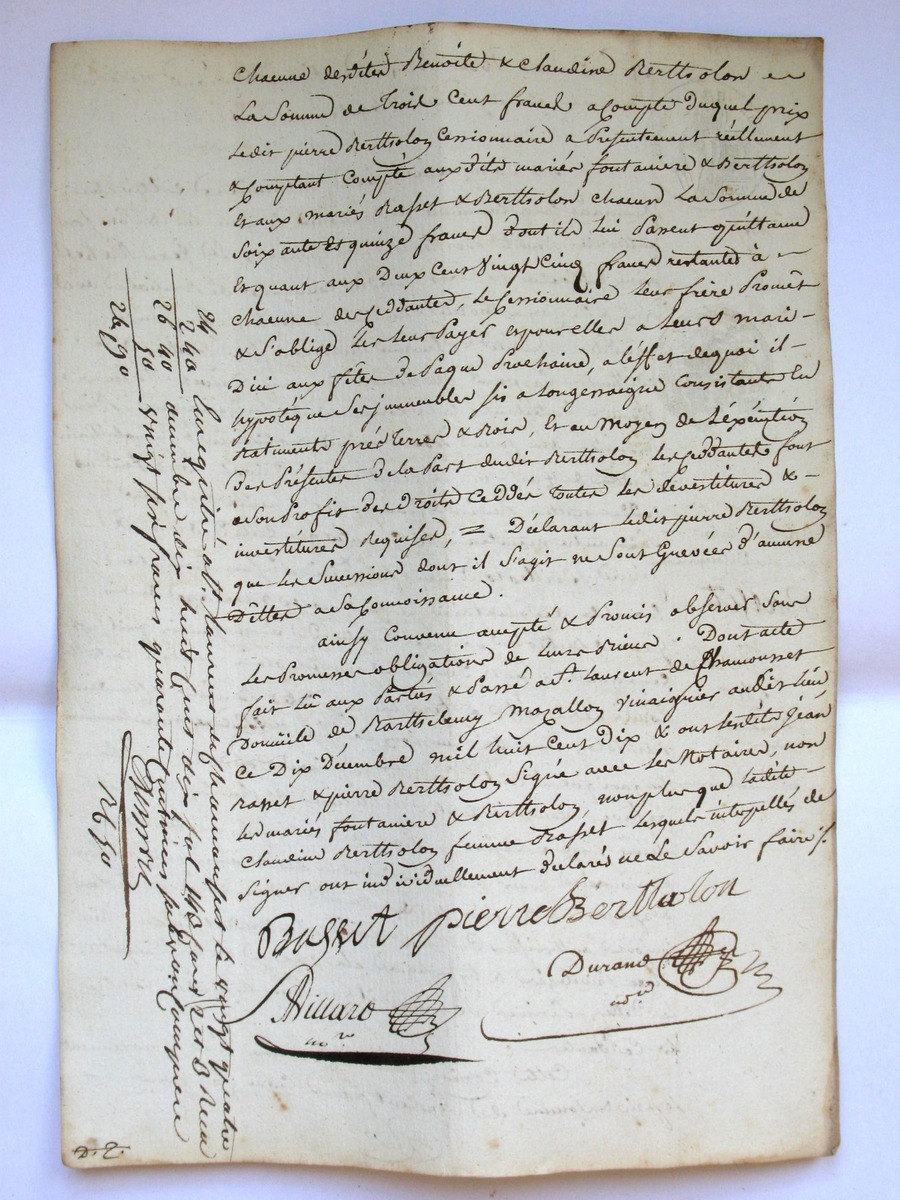 chacune desdites Benoite & Claudine Bertholon
La Somme de Trois Cent francs a compte Duquel prix
Ledit pierre Bertholon Cessionnaire a Presentement réellement
& Comptant Compté aux dits mariés fontaniere & Bertholon
Et aux mariés Basset & Bertholon chacun La Somme de
Soixante Et quinze francs dont ils lui Passent quittance
Et quant aux Deux Cent Vingt Cinq francs restantes à
chacune des Ceddantes, Le Cessionnaire Leur frère Promet
& S'oblige Les Leur Payer & pour elles a Leurs maris
D'ici aux fêtes de Paque Prochaine, a l'effet de quoi il
hypotèque Ses immeubles sis a Longessaigne Consistants En
Batiments prés Terres & Bois, Et au Moyen de L'éxécution
Des Présentes De la Part dudit Berthollon Les Ceddantes font
a Son Profit Des Droits Ceddés toutes Les devestitures &
investitures Requises, = Déclarant Ledit pierre Berthollon
que Les Successions dont il S'agit ne Sont Grevées d'aucune
Dettes a Sa Connoissance.
ainsy Convenu accepté & Promis observer Sous
Les Promesses obligations de Leurs Biens. Dont acte
fait Lû aux Parties & Passé a St. Laurent de Chamousset
Domicile de Barthelemy Mazallon Vinaigrier audit Lieu
Ce Dix Décembre mil huit Cent Dix & ont Lesdits Géan
Basset & pierre Berthollon Signé avec Les Notaires, non
Les mariés fontaniere & Berthollon, non plus que Ladite
Claudine Berthollon femme Basset Lesquels interpellés de
Signer ont individuellement déclarés ne Le Savoir faire ./.
Basset pierre Berthollon
Durand
no.re
Billard
no.re
Enregistré a St. Laurent de chamousset le vingt quatre
decembre dix huit Cent dix fol 148
vingt six francs quarante centimes
24
2 40
26 40
2 50